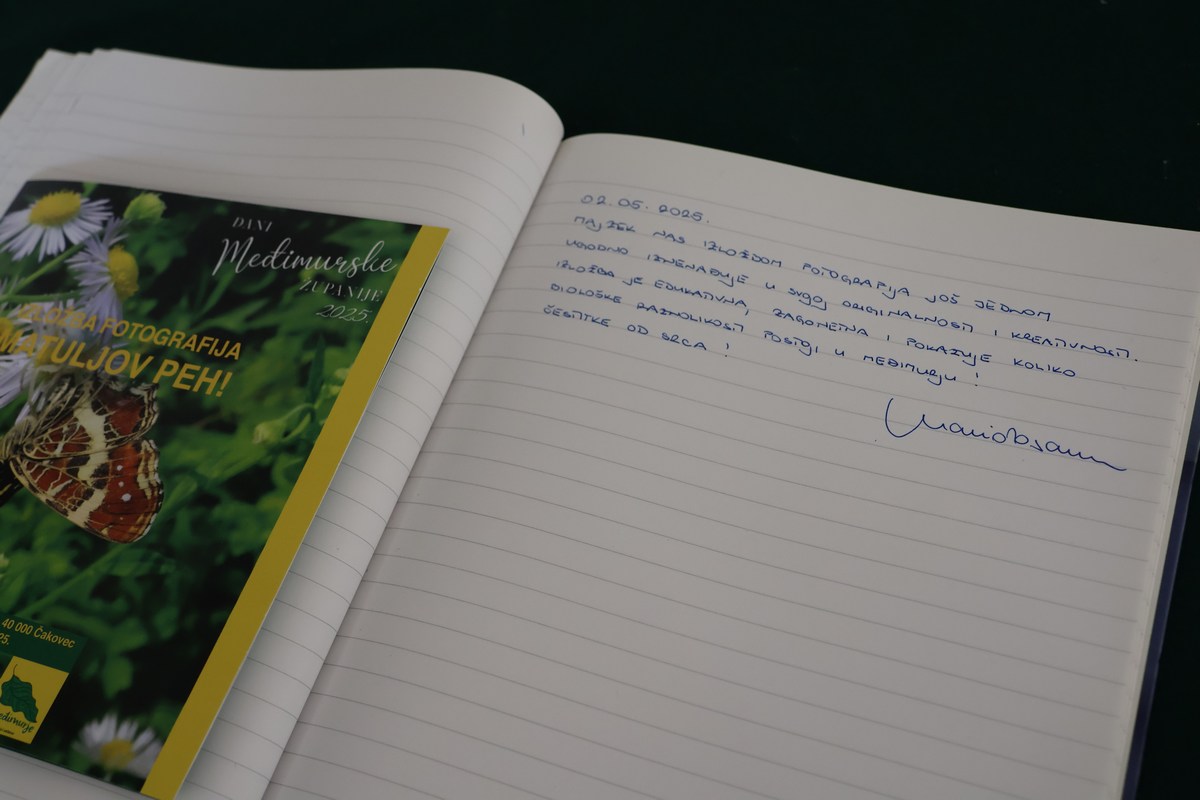 DANI
Međimurske
ŽUPANIJE
2025.
IZLOŽBA FOTOGRAFIJA
MATULJOV PEH!
40 000 Čakovec
međimurje
02.05.2025.
NAS IZLOŽBOM FOTOGRAFIJA JOŠ JEDNOM
UGODNO IZNENAĐUJE U SVOJOJ ORIGINALNOSTI I KREATIVNOSTI.
IZLOŽBA JE EDUKATIVNA, ZAGONETNA I POKAZUJE KOLIKO
BIOLOŠKE RAZNOLIKOSTI POSTOJI U MEĐIMURJU!
ČESTITKE OD SRCA!